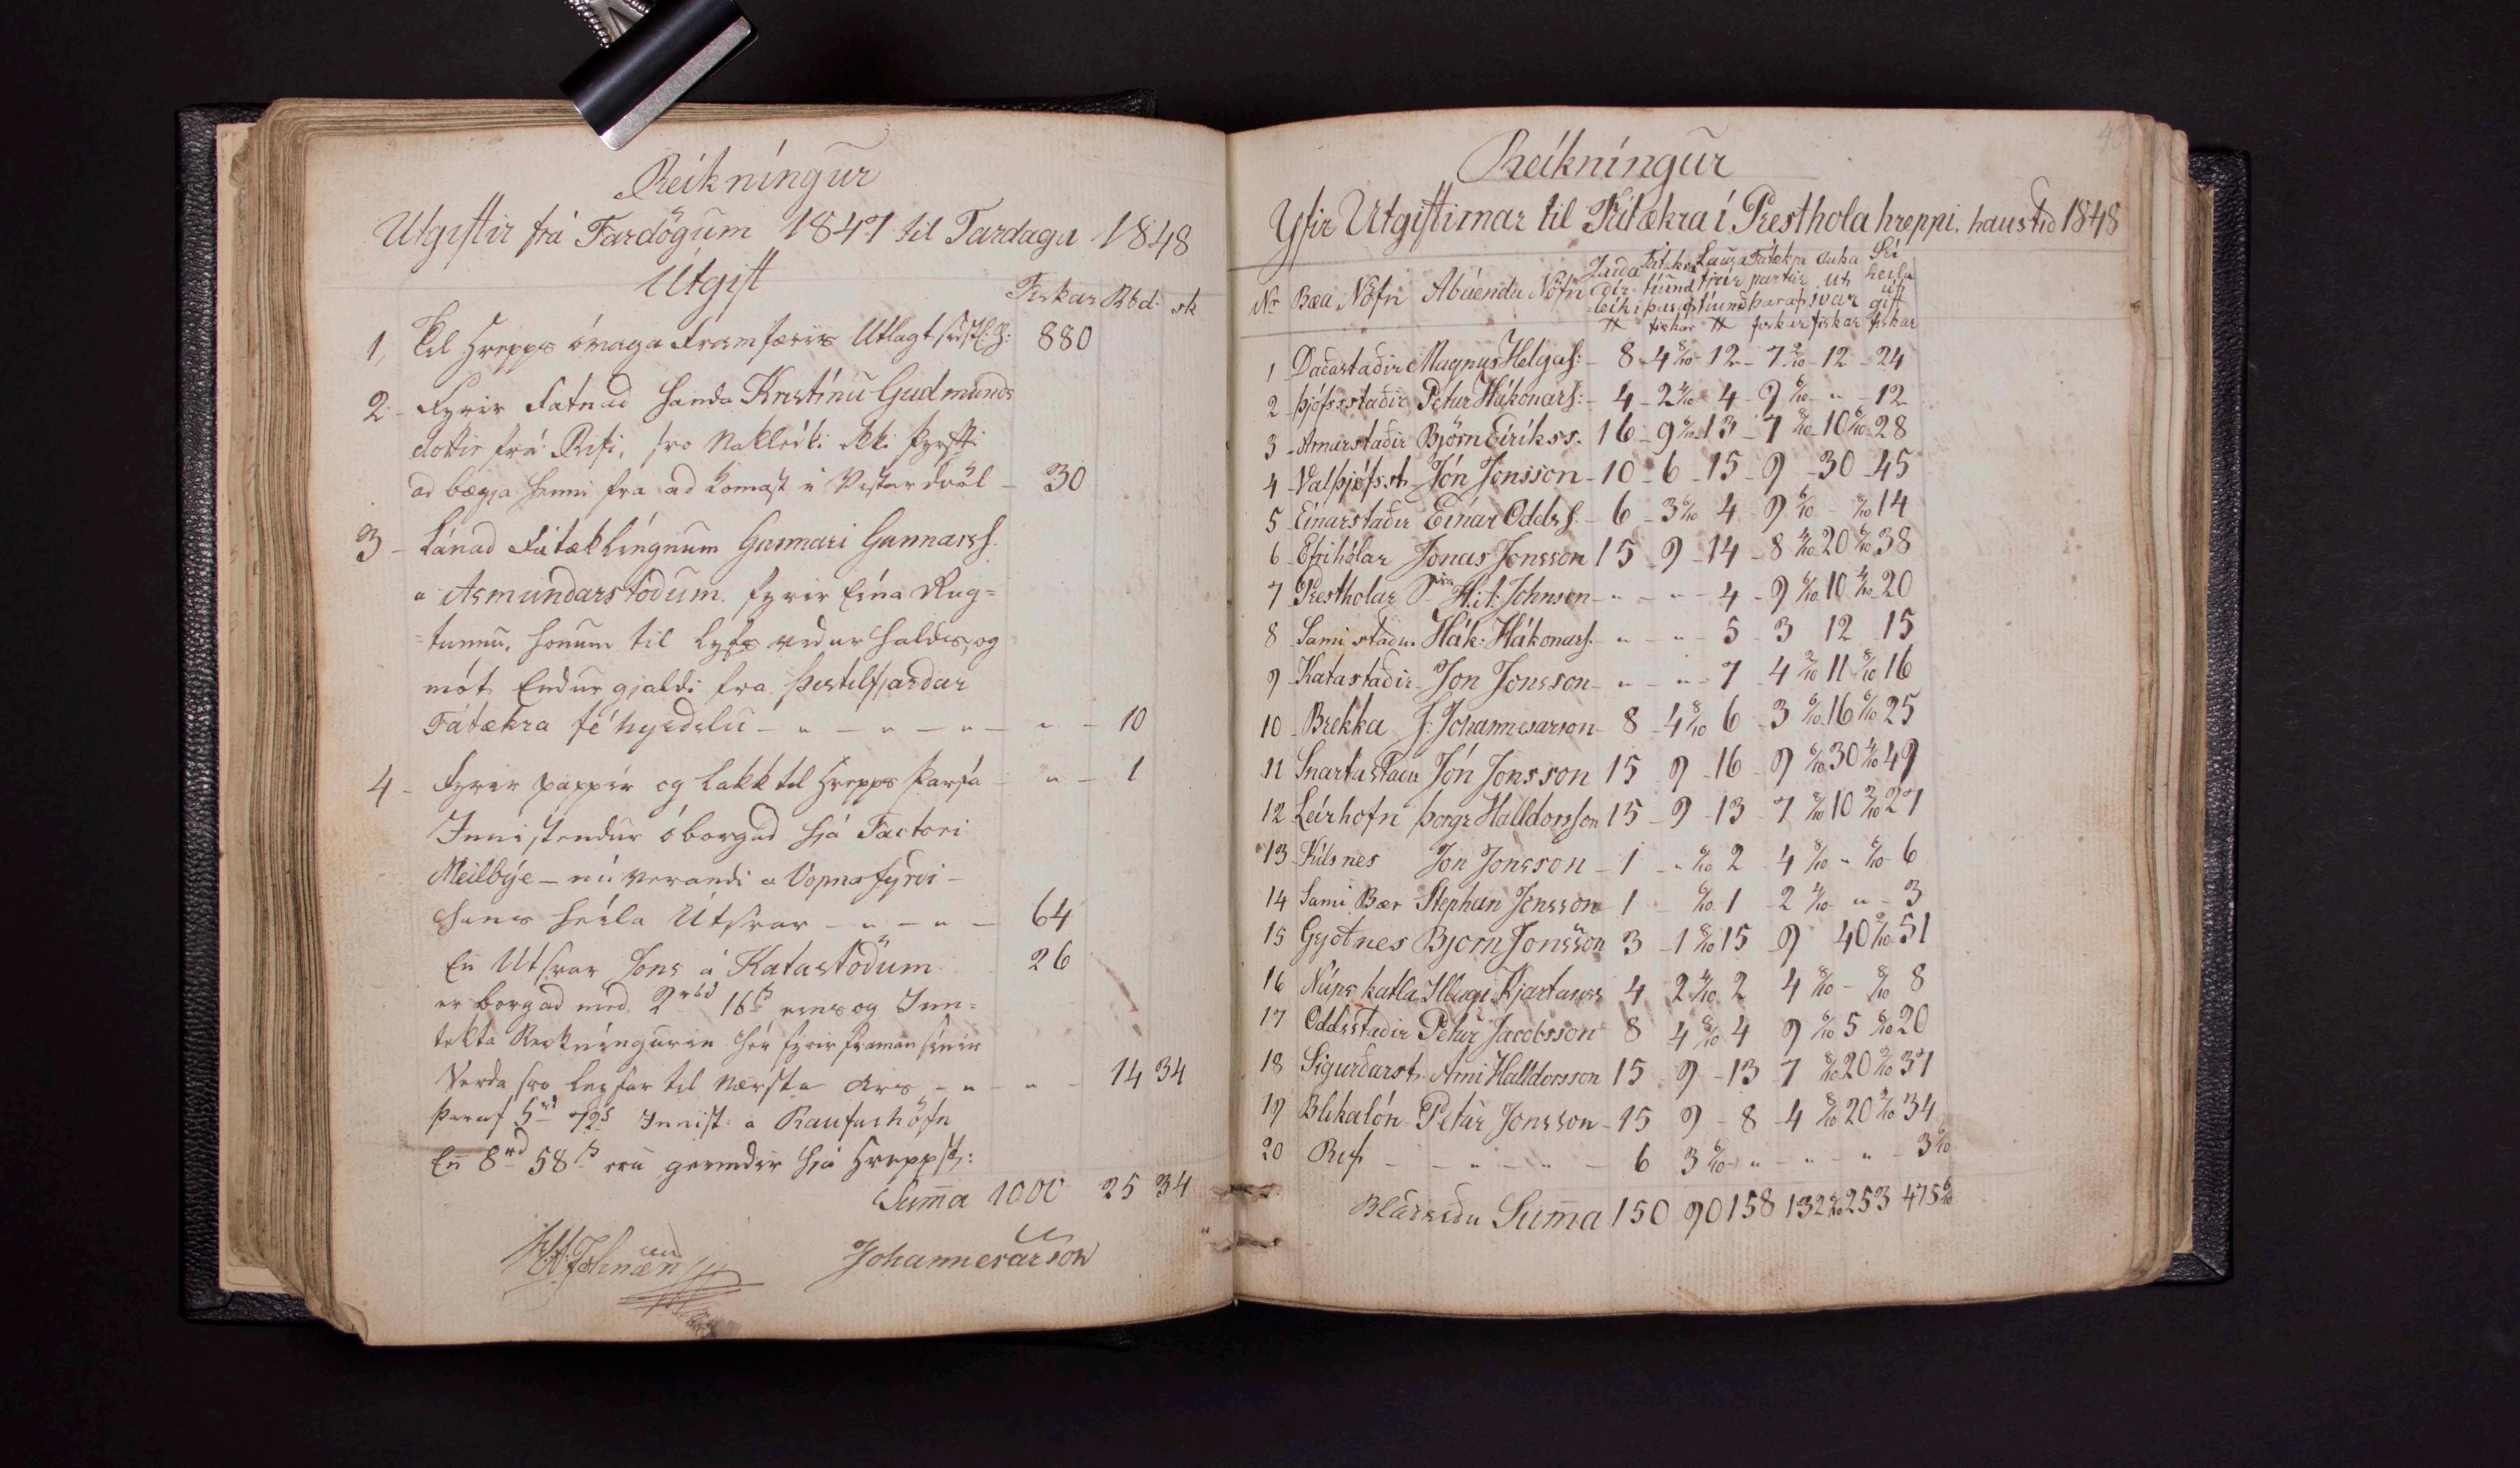 Reikníngur
Utgiftir frá Fardögum 1847 til Fardaga 1848
Útgift
Fiskar Rbd. sk
1, Til Hrepps ómaga Framfæris Utlagt 880
2 - Fyrir Fatnad handa Kristínu Gudmunds
dottir frá Rifi, svo Nakleiki ekki þyrfti
ad bægja henni fra ad komast i Vistar dvöl - 30
3 - Lánad Fátæklíngnum Gunnari Gunnarss.
a Asmundarstödum fyrir Eina Rug=
=tunnu, honum til Lyfs vidur haldis, og
mót Endurgjaldi fra Þistilfjardar
Fátækra féhyrdslu - " - " - " - " - 10
4 - Fyrir pappír og Lakk til Hrepps þarfa - " - 1
Innistendur óborgad hjá Factori
Meilbýe - nú verandi a Vopnafyrdi -
hans heila Útsvar - " - " - 64
En Utsvar Jons á Katastödum 26
er borgad med 2 rbd 16 s eins og Inn=
tekta Reikníngurin hér fyrir framan sínir
Verda svo leyfar til Næsta Ars - " - " - 14 34
þaraf 5 rd 72 s Innist: a Raufarhöfn
En 8 rd 58 s eru geimdir hjá Hreppst:
Sum̄a 1000 25 34
H.A. Johnsen Johannesarson
43
Reikníngur
Yfir Utgiftirnar til Fátækra í Presthola hreppi, haustid 1848
Jarda Fátækra Lausa Fátækra Auka Sú
Nr Bæa Nöfn Abúenda Nöfn dír- tíund fjár partur út heila
leiki þaraf tíund þaraf svar út gift
fiskar fiskar fiskar fiskar
1 Daðastaðir Magnus Helgas: - 8 - 4 8/10 - 12 - 7 2/10 - 12 - 24
2 Þjófsstaðir Petur Hákonars: - 4 - 2 4/10 - 4 - 9 6/10 - " - 12
3 Arnarstaðir Björn Eirikss. 16 - 9 6/10 - 13 - 7 8/10 - 10 6/10 - 28
4 Valþjófsst. Jón Jonsson - 10 - 6 - 15 - 9 - 30 - 45
5 Einarstaðir Einar Odds s. - 6 - 3 6/10 4 - 9 6/10 - 8/10 14
6 Efrihólar Jonas Jonsson 15 - 9 - 14 - 8 4/10 20 6/10 38
7 Prestholar Sra H:A: Johnsen - " - " - 4 - 9 6/10 10 4/10 - 20
8 Sami staður Hák: Hákonars. " - " - 5 - 3 12 15
9 Katastaðir Jon Jonsson - " - " - 7 4 2/10 11 8/10 16
10 Brekka J: Johannesarson 8 - 4 8/10 6 - 3 6/10 16 6/10 25
11 Snartastaðir Jón Jonsson 15 - 9 - 16 - 9 6/10 30 4/10 49
12 Leirhofn Þorgr Halldorsson 15 - 9 - 13 - 7 8/10 10 2/10 27
13 Kílsnes Jon Jonsson - 1 - " 6/10 2 4 8/10 " 6/10 - 6
14 Sami Bær Stephan Jonsson 1 - 6/10 - 1 2 4/10 - " - 3
15 Gyótnes Bjorn Jonsson 3 - 1 8/10 15 9 40 2/10 - 51
16 Núpskatla Illugi Kjartanss 4 2 4/10 2 4 8/10 - 8/10 8
17 Oddsstaðir Petur Jacobsson 8 4 8/10 4 9 6/10 5 6/10 20
18 Sigurðarst. Arni Halldorsson 15 - 9 - 13 - 7 8/10 20 2/10 37
19 Blikalón Petur Jonsson - 15 9 - 8 - 4 8/10 20 2/10 34
20 Rif - - " - " - 6 3 6/10 - " - " - " - 3 6/10
Blaðsiðu Sum̄a 150 90 158 132 253 475 6/10